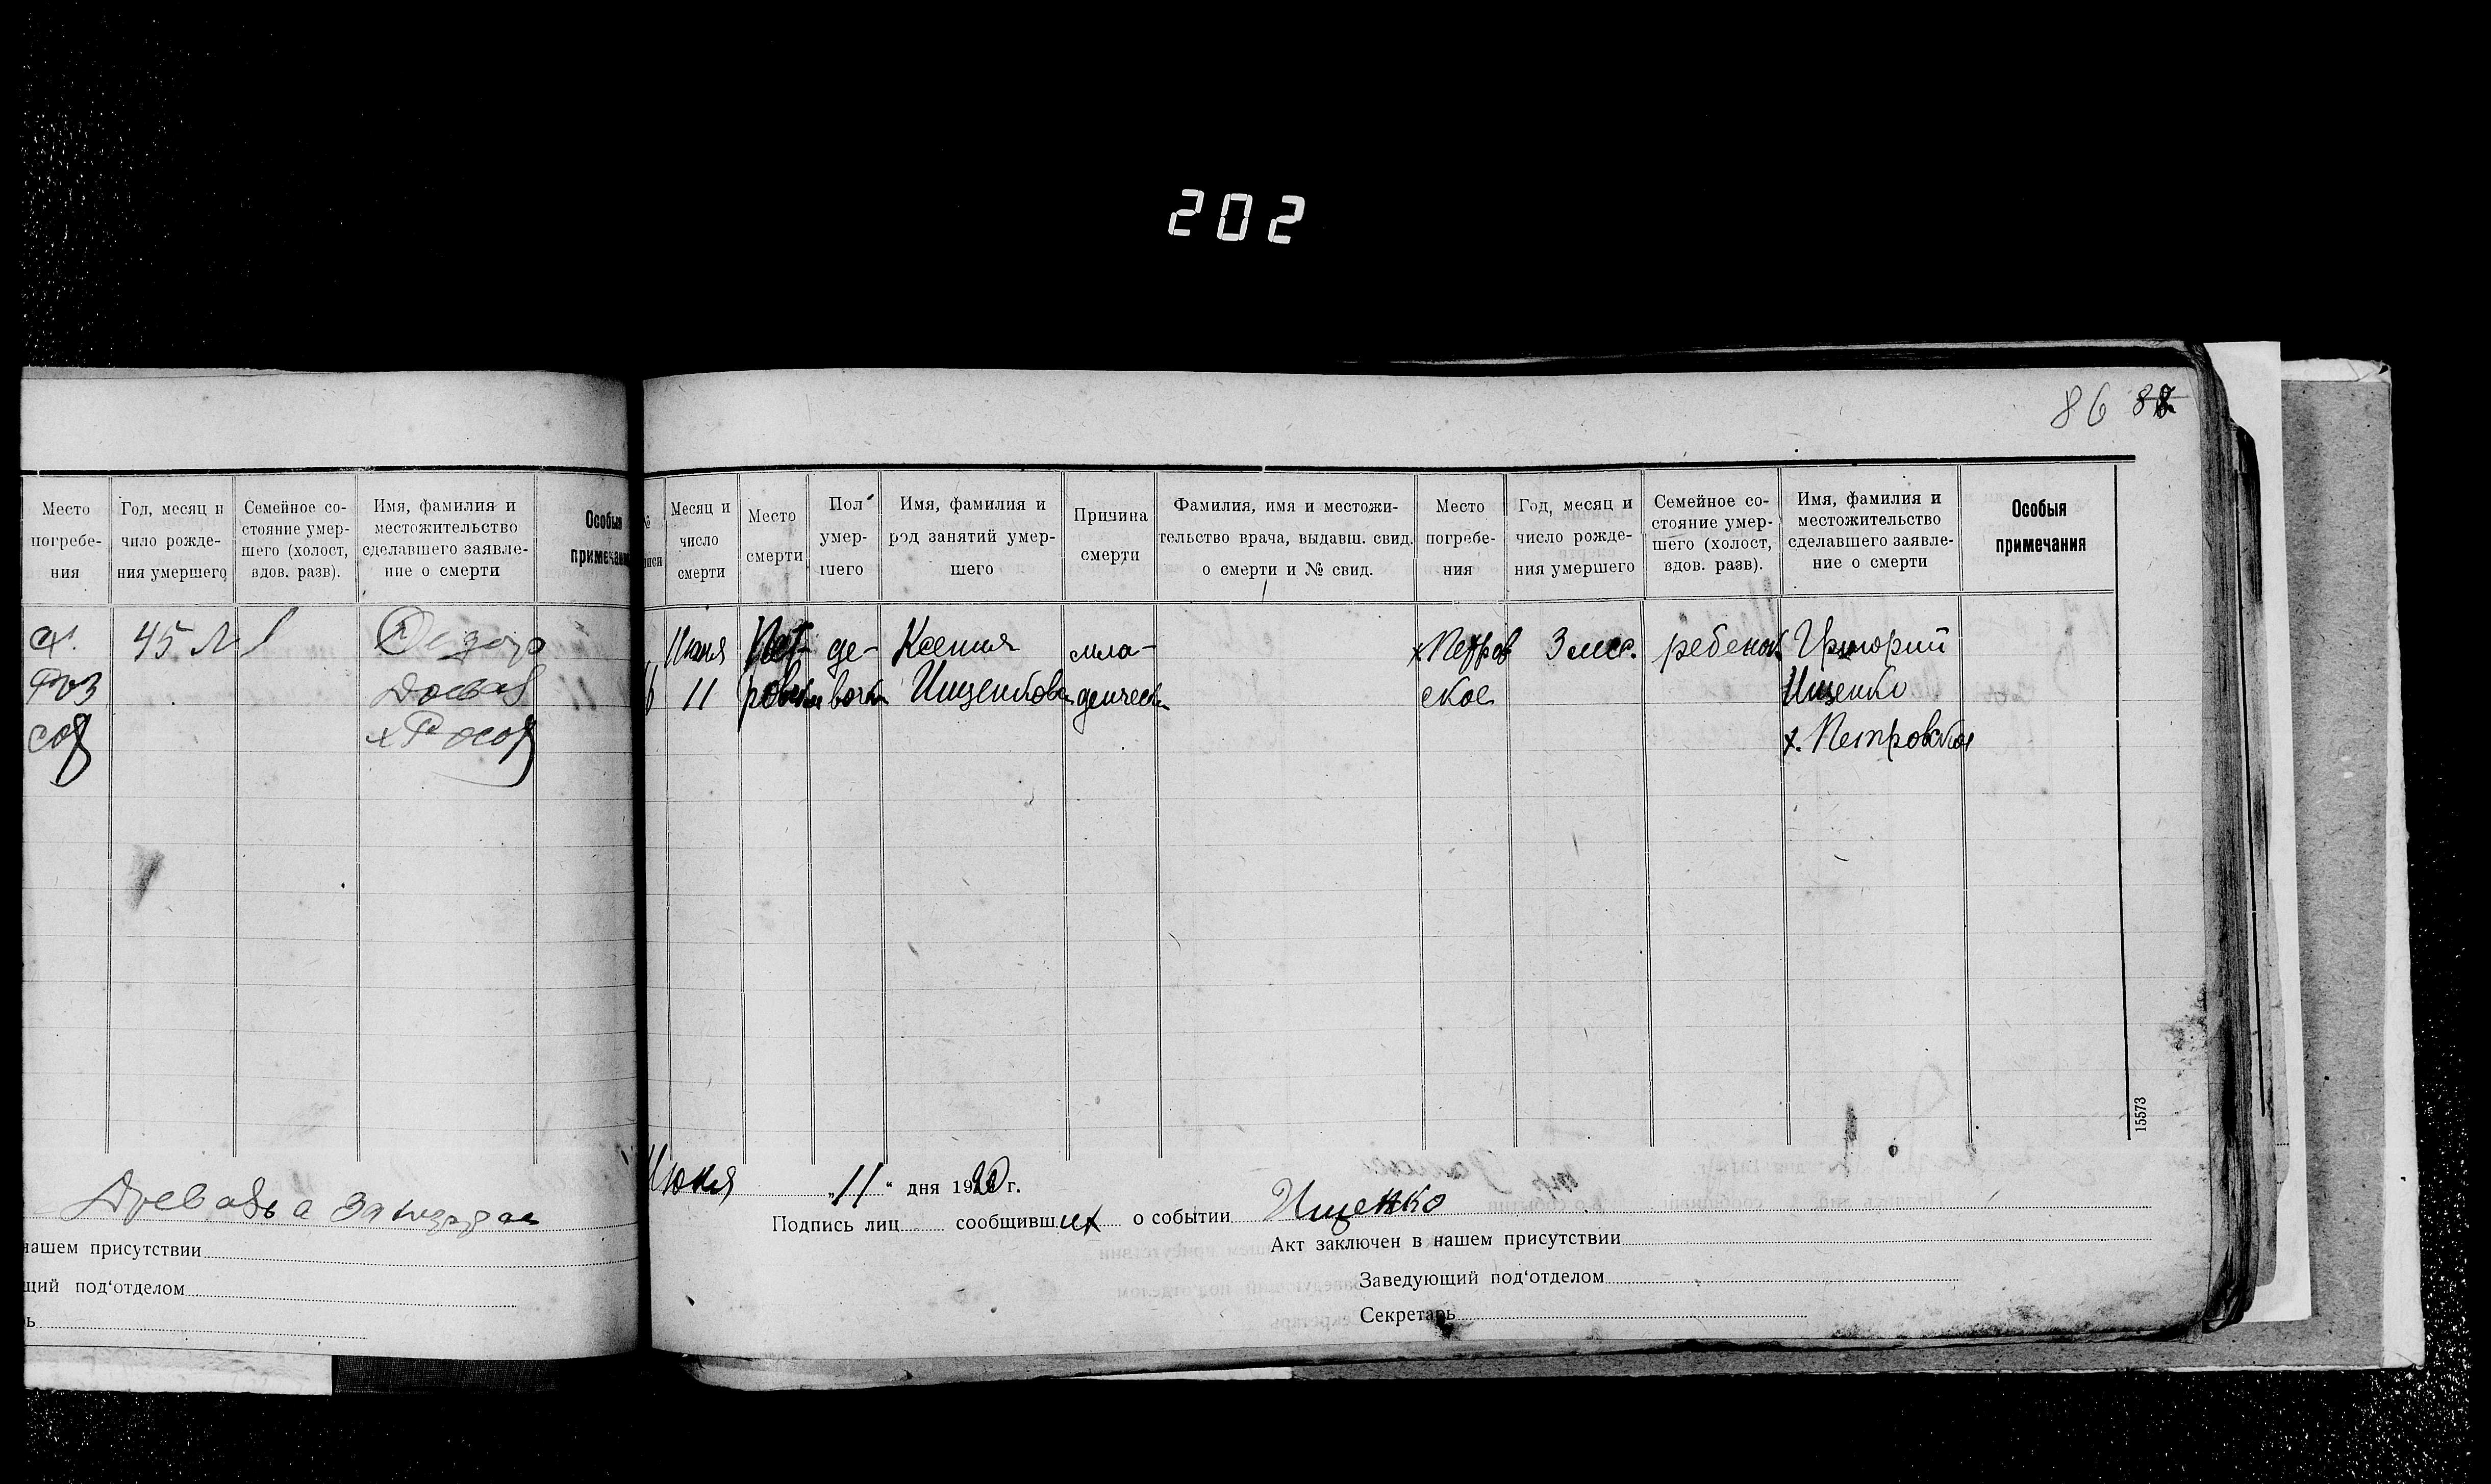 202
86 88
Место
погребе-
ния
Год, месяц и
чило рожде-
ния умершего
Семейное со-
стояние умер-
шего (холост,
вдов. разв).
Имя, фамилия и
местожительство
сделавшего заявле-
ние о смерти
Особыя
примечания
х.
45 л
нашем присутствии
щий под‘отделом
ь
№
Месяц и
число
смерти
Место
смерти
Пол
умер-
шего
Имя, фамилия и
род занятий умер-
шего
Причина
смерти
Фамилия, имя и местожи-
тельство врача, выдавш. свид.
о смерти и № свид.
Место
погребе-
ния
Год, месяц и
число рожде-
ния умершего
Семейное со-
стояние умер-
шего (холост,
вдов. разв).
Имя, фамилия и
местожительство
сделавшего заявле-
ние о смерти
Особыя
примечания
Июня
11
Пет-
де-
Ксения
мла-
х Петров
ское
3 мес.
ребенок
Григорий
Ищенко
х. Петровское
15573
Июня „11“ дня 1920 г.
Подпись лиц сообщивших о событии Ищенко
Акт заключен в нашем присутствии
Заведующий под‘отделом
Секретарь